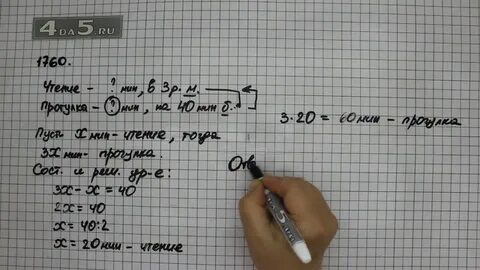 4DA5.RU
1760.
Чтение – ? мин, в 3 р. м.
Прогулка – ? мин, на 40 мин б.
Пусть x мин – чтение, тогда
3x мин – прогулка.
Сост. и реш. ур-е:
3x – x = 40
2x = 40
x = 40:2
x = 20 мин – чтение
3·20 = 60 мин – прогулка
Отв
4da5.ru